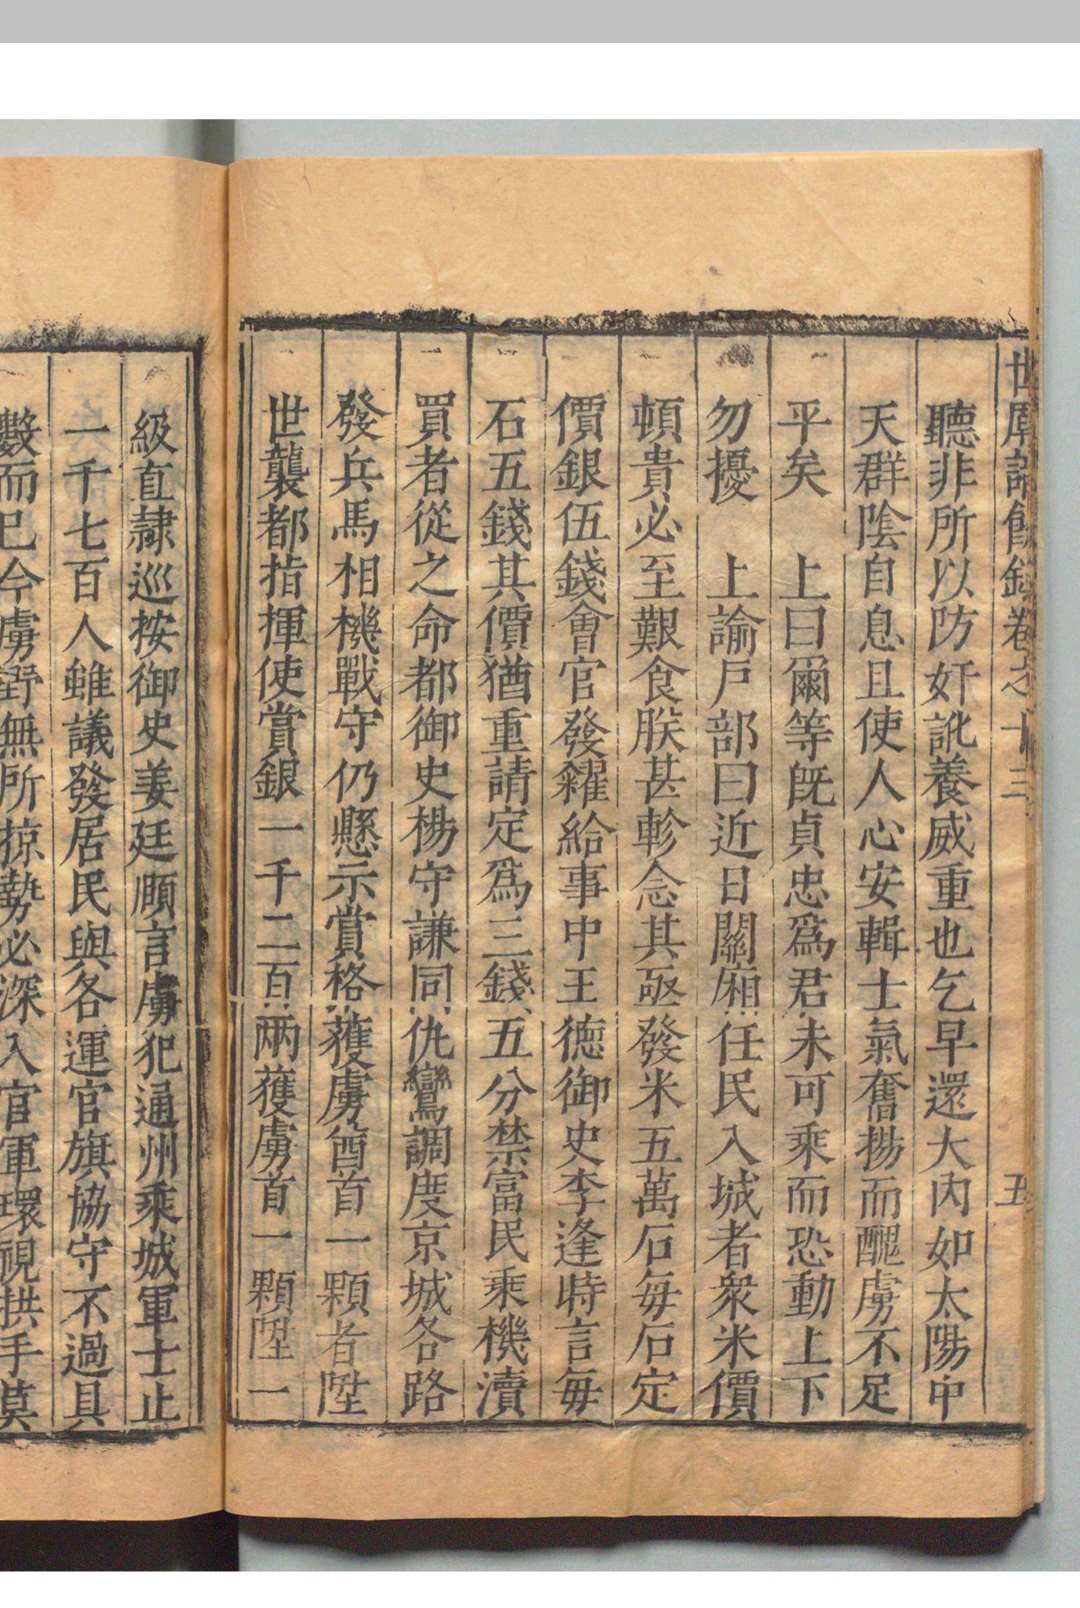 世庿識餘錄卷之十三
五
聽非所以防奸訛養威重也乞早還大內如太陽中
天群陰自息且使人心安輯士氣奮揚而醜虜不足
平矣 上曰爾等旣貞忠爲君未可乘而恐動上下
勿擾 上諭戶部曰近日關廂任民入城者衆米價
頓貴必至艱食朕甚軫念其亟發米五萬石每石定
價銀伍錢會官發糴給事中王德御史李逢時言每
石五錢其價猶重請定爲三錢五分禁富民乘機瀆
買者從之命都御史楊守謙同仇鸞調度京城各路
發兵馬相機戰守仍懸示賞格獲虜酋首一顆者陞
世襲都指揮使賞銀一千二百兩獲虜首一顆陞一
級直隷巡按御史姜廷頤言虜犯通州乘城軍士止
一千七百人雖議發居民與各運官旗協守不過具
數而已今虜野無所掠勢必深入官軍環視拱手莫